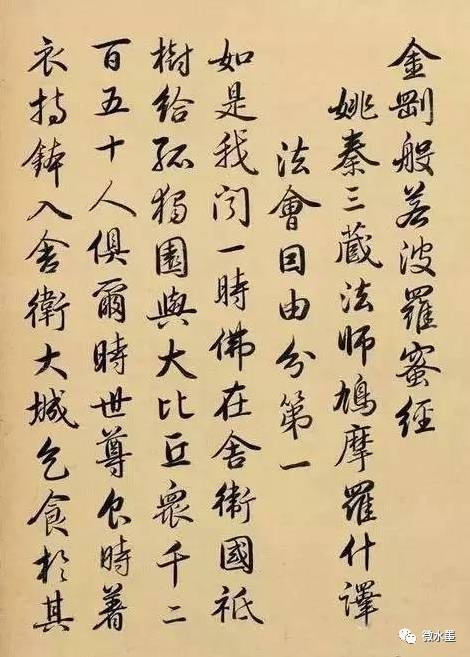 金剛般若波羅蜜經
姚秦三藏法師鳩摩羅什譯
法會因由分第一
如是我聞一時佛在舍衛國祇
樹給孤獨園與大比丘眾千二
百五十人俱爾時世尊食時著
衣持鉢入舍衛大城乞食於其
微水墨